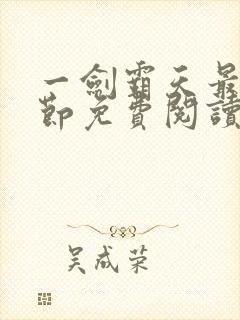 一劍霸天最
節免費閱讀
吴成荣